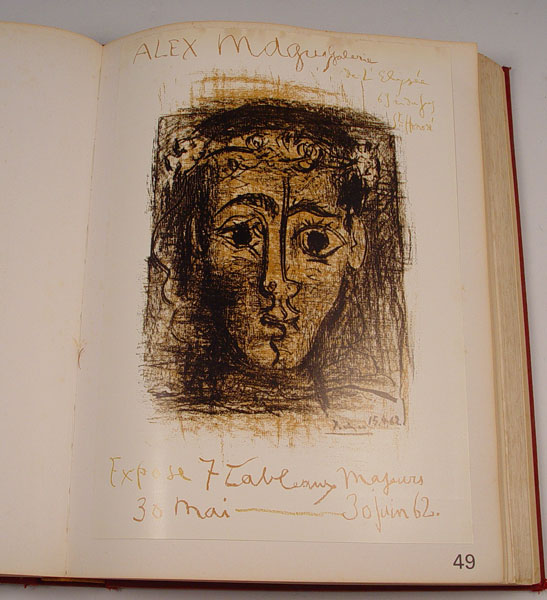 ALEX Maguy galerie
de l'Elysée
69 rue du fg
St Honoré
15.4.62.
Expose 7 tableaux Majeurs
30 mai — 30 juin 62.
49